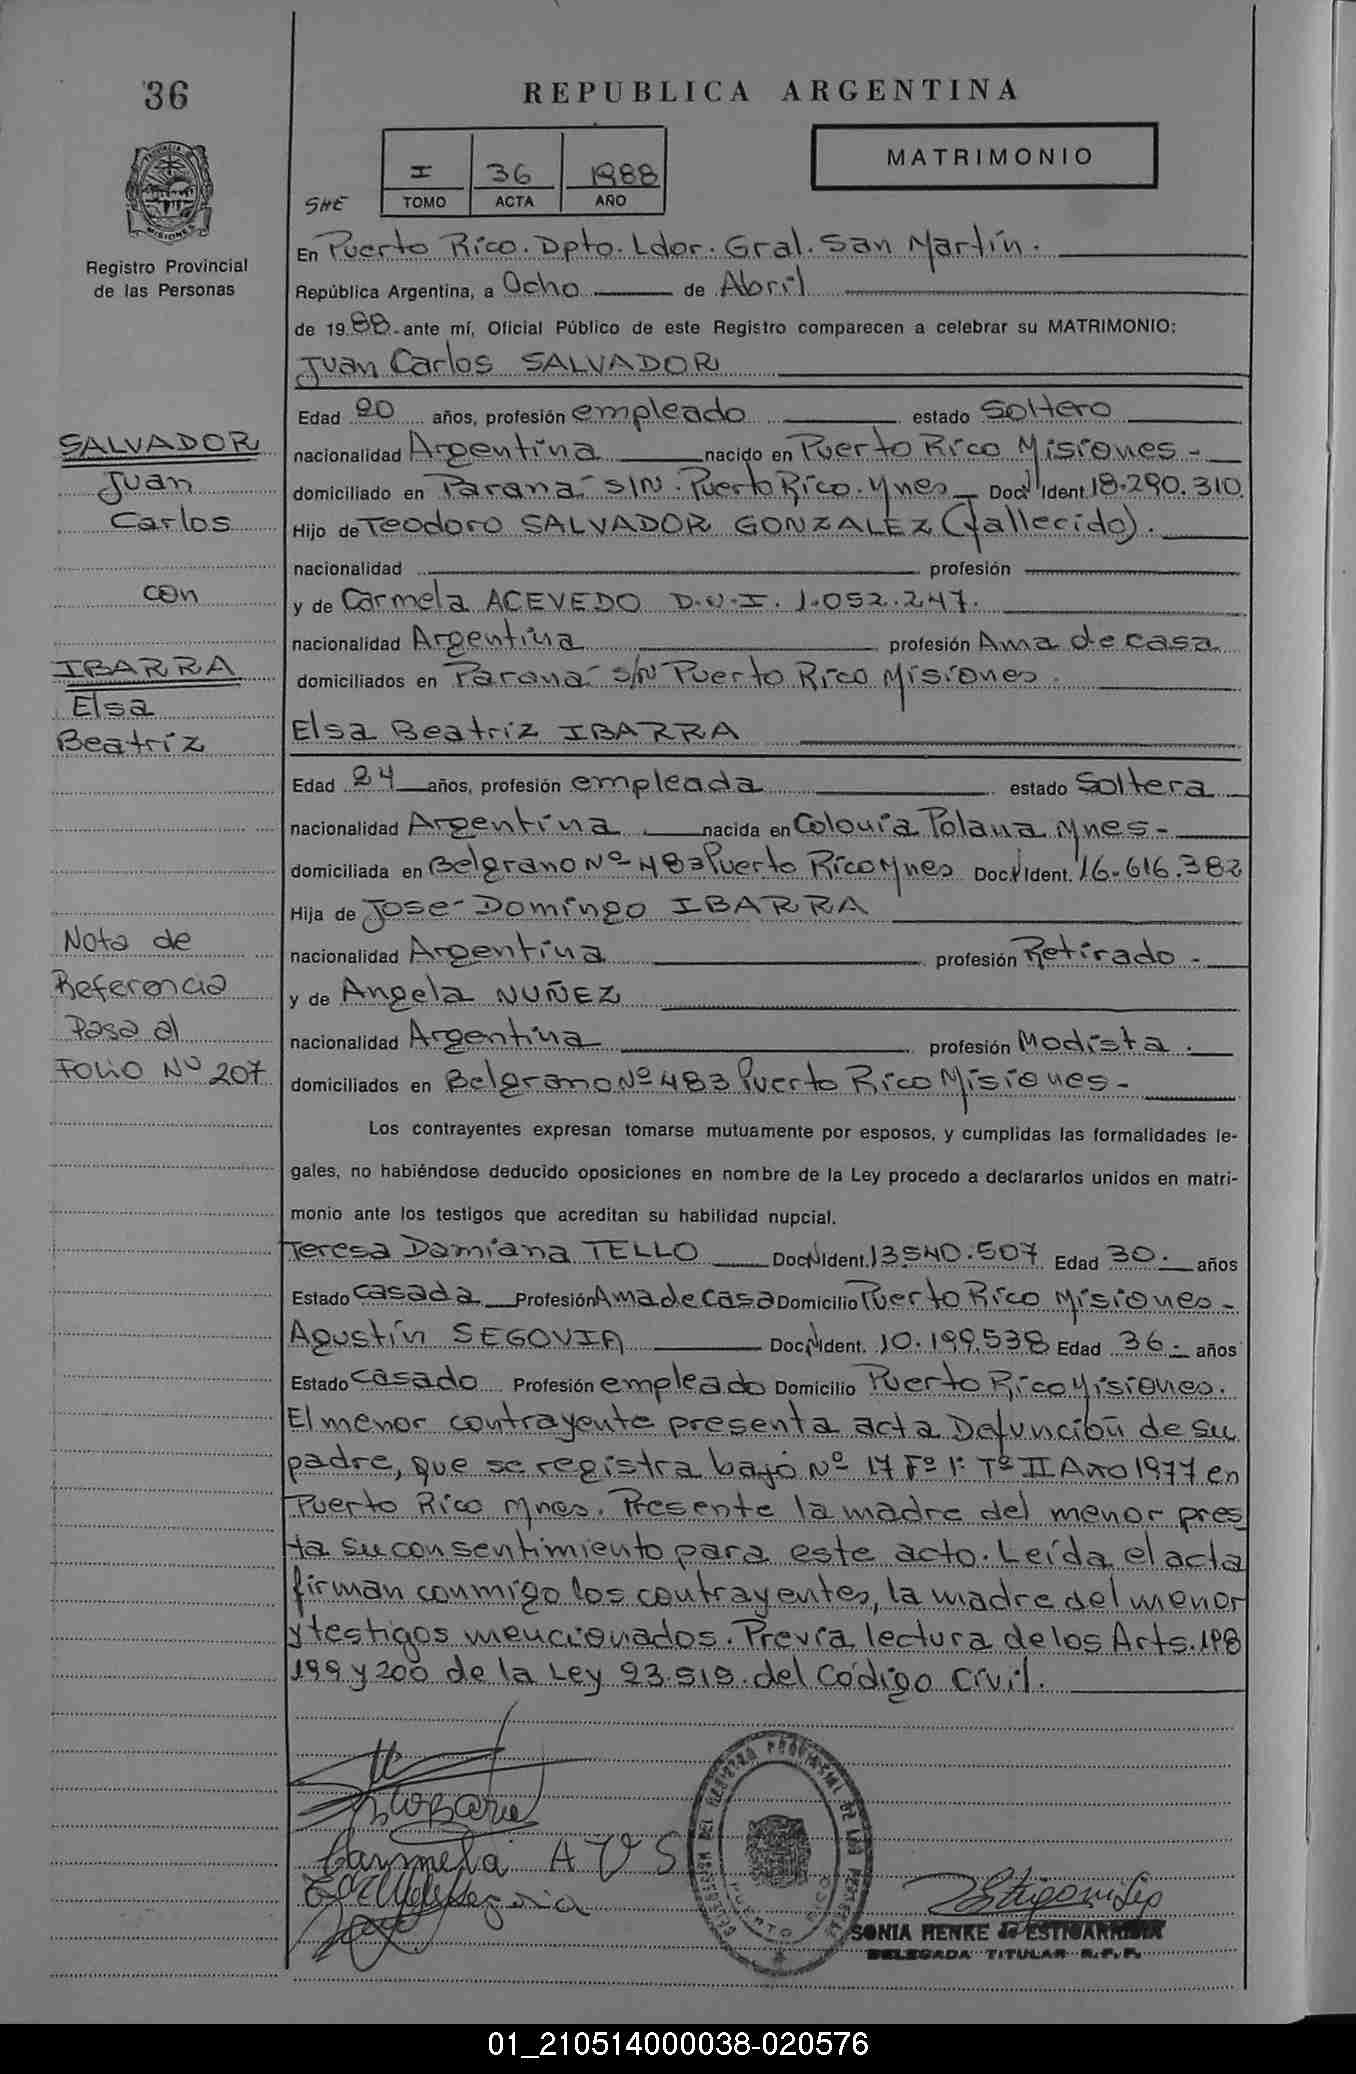 36
REPUBLICA ARGENTINA
MATRIMONIO
I 36 1988
TOMO ACTA AÑO
SHE
PROVINCIA DE MISIONES
Registro Provincial
de las Personas
En Puerto Rico. Dpto. Ldor. Gral. San Martín.
República Argentina, a Ocho de Abril
de 1988 ante mí, Oficial Público de este Registro comparecen a celebrar su MATRIMONIO:
Juan Carlos SALVADOR
Edad 20 años, profesión empleado estado Soltero
nacionalidad Argentina nacido en Puerto Rico Misiones -
domiciliado en Paraná s/N. Puerto Rico. Mnes Doc. N Ident 18.290.310.
Hijo de Teodoro SALVADOR GONZALEZ (fallecido).
nacionalidad profesión
y de Carmela ACEVEDO D.N.I. 1.052.247.
nacionalidad Argentina profesión Ama de casa
domiciliados en Paraná s/N Puerto Rico Misiones.
Elsa Beatriz IBARRA
Edad 24 años, profesión empleada estado Soltera
nacionalidad Argentina nacida en Colonia Polana Mnes -
domiciliada en Belgrano Nº 483 Puerto Rico Mnes Doc. N Ident. 16.616.382
Hija de José Domingo IBARRA
nacionalidad Argentina profesión Retirado -
y de Angela NUÑEZ
nacionalidad Argentina profesión Modista.
domiciliados en Belgrano Nº 483 Puerto Rico Misiones -
Los contrayentes expresan tomarse mutuamente por esposos, y cumplidas las formalidades le-
gales, no habiéndose deducido oposiciones en nombre de la Ley procedo a declararlos unidos en matri-
monio ante los testigos que acreditan su habilidad nupcial.
Teresa Damiana TELLO Doc. N Ident. 13.540.507 Edad 30. años
Estado casada Profesión Ama de casa Domicilio Puerto Rico Misiones -
Agustín SEGOVIA Doc. N Ident. 10.199.538 Edad 36 - años
Estado casado Profesión empleado Domicilio Puerto Rico Misiones.
El menor contrayente presenta acta Defunción de su
padre, que se registra bajo Nº 17 Fº 1º Tº II Año 1977 en
Puerto Rico Mnes. Presente la madre del menor pres
ta su consentimiento para este acto. Leída el acta
firman conmigo los contrayentes, la madre del menor
y testigos mencionados. Previa lectura de los Arts. 198
199 y 200 de la Ley 23.515. del Código Civil.
SALVADOR
Juan
Carlos
con
IBARRA
Elsa
Beatriz
Nota de
Referencia
Pasa al
FOLIO Nº 207
Carmela A V S
Segovia
DELEGACION DEL REGISTRO PROVINCIAL DE LAS PERSONAS
PUERTO RICO
SONIA HENKE de ESTIGARRIBIA
DELEGADA TITULAR R.P.P.
01_210514000038-020576